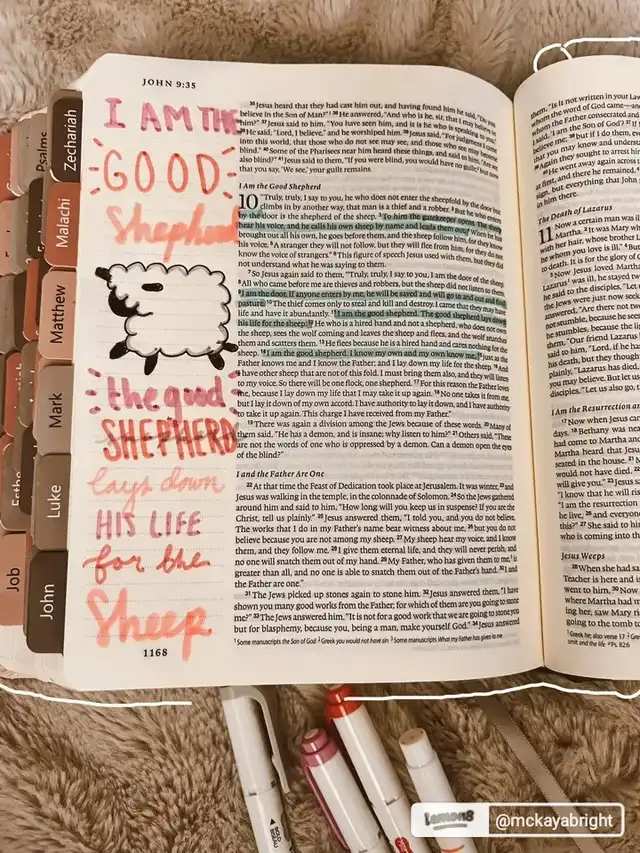 JOHN 9:35
I AM THE
GOOD
Shepherd
the good
SHEPHERD
lays down
HIS LIFE
for the
Sheep
1168
Psalms
Zechariah
Malachi
Matthew
Mark
Luke
John
Job
35 Jesus heard that they had cast him out, and having found him he said, "Do you
believe in the Son of Man?" 36 He answered, "And who is he, sir, that I may believe in
him?" 37 Jesus said to him, "You have seen him, and it is he who is speaking to you."
38 He said, "Lord, I believe," and he worshiped him. 39 Jesus said, "For judgment I came
into this world, that those who do not see may see, and those who see may become
blind." 40 Some of the Pharisees near him heard these things, and said to him, "Are we
also blind?" 41 Jesus said to them, "If you were blind, you would have no guilt; but now
that you say, 'We see,' your guilt remains.
I Am the Good Shepherd
10 "Truly, truly, I say to you, he who does not enter the sheepfold by the door but
climbs in by another way, that man is a thief and a robber. 2 But he who enters
by the door is the shepherd of the sheep. 3 To him the gatekeeper opens. The sheep
hear his voice, and he calls his own sheep by name and leads them out. 4 When he has
brought out all his own, he goes before them, and the sheep follow him, for they know
his voice. 5 A stranger they will not follow, but they will flee from him, for they do not
know the voice of strangers." 6 This figure of speech Jesus used with them, but they did
not understand what he was saying to them.
7 So Jesus again said to them, "Truly, truly, I say to you, I am the door of the sheep.
8 All who came before me are thieves and robbers, but the sheep did not listen to them.
9 I am the door. If anyone enters by me, he will be saved and will go in and out and find
pasture. 10 The thief comes only to steal and kill and destroy. I came that they may have
life and have it abundantly. 11 I am the good shepherd. The good shepherd lays down
his life for the sheep. 12 He who is a hired hand and not a shepherd, who does not own
the sheep, sees the wolf coming and leaves the sheep and flees, and the wolf snatches
them and scatters them. 13 He flees because he is a hired hand and cares nothing for the
sheep. 14 I am the good shepherd. I know my own and my own know me, 15 just as the
Father knows me and I know the Father; and I lay down my life for the sheep. 16 And
I have other sheep that are not of this fold. I must bring them also, and they will listen
to my voice. So there will be one flock, one shepherd. 17 For this reason the Father loves
me, because I lay down my life that I may take it up again. 18 No one takes it from me,
but I lay it down of my own accord. I have authority to lay it down, and I have authority
to take it up again. This charge I have received from my Father."
19 There was again a division among the Jews because of these words. 20 Many of
them said, "He has a demon, and is insane; why listen to him?" 21 Others said, "These
are not the words of one who is oppressed by a demon. Can a demon open the eyes
of the blind?"
I and the Father Are One
22 At that time the Feast of Dedication took place at Jerusalem. It was winter, 23 and
Jesus was walking in the temple, in the colonnade of Solomon. 24 So the Jews gathered
around him and said to him, "How long will you keep us in suspense? If you are the
Christ, tell us plainly." 25 Jesus answered them, "I told you, and you do not believe.
The works that I do in my Father's name bear witness about me, 26 but you do not
believe because you are not among my sheep. 27 My sheep hear my voice, and I know
them, and they follow me. 28 I give them eternal life, and they will never perish, and
no one will snatch them out of my hand. 29 My Father, who has given them to me, is
greater than all, and no one is able to snatch them out of the Father's hand. 30 I and
the Father are one."
31 The Jews picked up stones again to stone him. 32 Jesus answered them, "I have
shown you many good works from the Father; for which of them are you going to stone
me?" 33 The Jews answered him, "It is not for a good work that we are going to stone you
but for blasphemy, because you, being a man, make yourself God." 34 Jesus answered
1 Some manuscripts the Son of God 2 Greek you would not have sin 3 Some manuscripts What my Father has given to me
them, "Is it not written in your Law
whom the word of God came—and
whom the Father consecrated and
'I am the Son of God'? 37 If
believe me; 38 but if I do them, ev
that you may know and understand
39 Again they sought to arrest him
40 He went away across
at first, and there he remained. 4
sign, but everything that John
in him there.
The Death of Lazarus
11 Now a certain man was
Martha. 2 It was Mary wh
with her hair, whose brother
he whom you love is ill."
to death. It is for the glory of
5 Now Jesus loved Martha
Lazarus was ill, he stayed tw
he said to the disciples, "Let
the Jews were just now
answered, "Are there not tw
not stumble, because he sees
he stumbles, because the li
them, "Our friend Lazarus
said to him, "Lord, if he ha
his death, but they though
plainly, "Lazarus has died,
you may believe. But let us
disciples, "Let us also go, t
I Am the Resurrection a
17 Now when Jesus cam
days. 18 Bethany was nea
had come to Martha and
Martha heard that Jesu
seated in the house. 21 M
would not have died.
will give you." 23 Jesus
"I know that he will ri
"I am the resurrection
he live, 26 and everyone
this?" 27 She said to
who is coming into th
Jesus Weeps
28 When she had sa
Teacher is here and i
went to him. 30 Now
where Martha had m
ing her, saw Mary ri
going to the tomb to
lemon8
@mckayabright